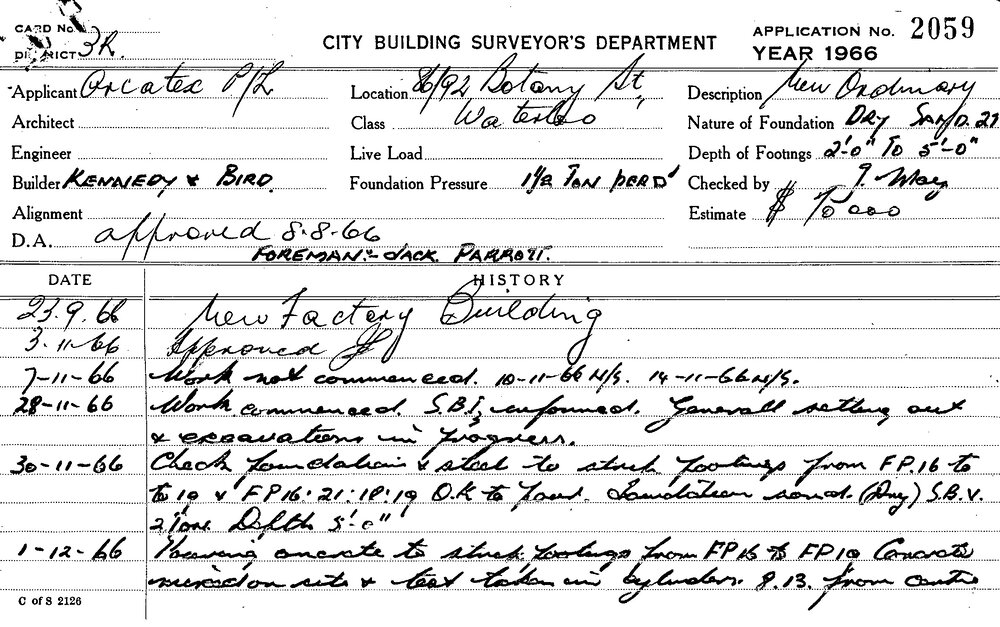 CARD No.
DISTRICT 3R.
CITY BUILDING SURVEYOR'S DEPARTMENT
APPLICATION No. 2059
YEAR 1966
Applicant Arcatex P/L
Location 86/92 Botany St,
Description New Ordinary
Architect
Class Waterloo
Nature of Foundation DRY SAND. 2T
Engineer
Live Load
Depth of Footings 2'-0" TO 5'-0"
Builder KENNEDY & BIRD.
Foundation Pressure 1½ TON PER
Checked by May
Alignment
Estimate $ 70 000
D.A. approved 8-8-66
FOREMAN:- JACK. PARROTT.
DATE HISTORY
23.9.66 New Factory Building
3-11-66 Approved
7-11-66 Work not commenced. 10-11-66 N/S. 14-11-66 N/S.
28-11-66 Work commenced. S.B.I. informed. Generall setting out
& excavations in progress.
30-11-66 Check foundation & steel to footings from F.P.16 to
to 19 & F.P.16: 21: 18: 19 O.K to Pour. Foundation sand. (Dry) S.B.V.
2 Tons. Depth 5'-0"
1-12-66 Pouring concrete to footings from F.P.16 to F.P.19 Concrete
mixed on site & test taken in cylinders. 8.13. from centre
C of S 2126